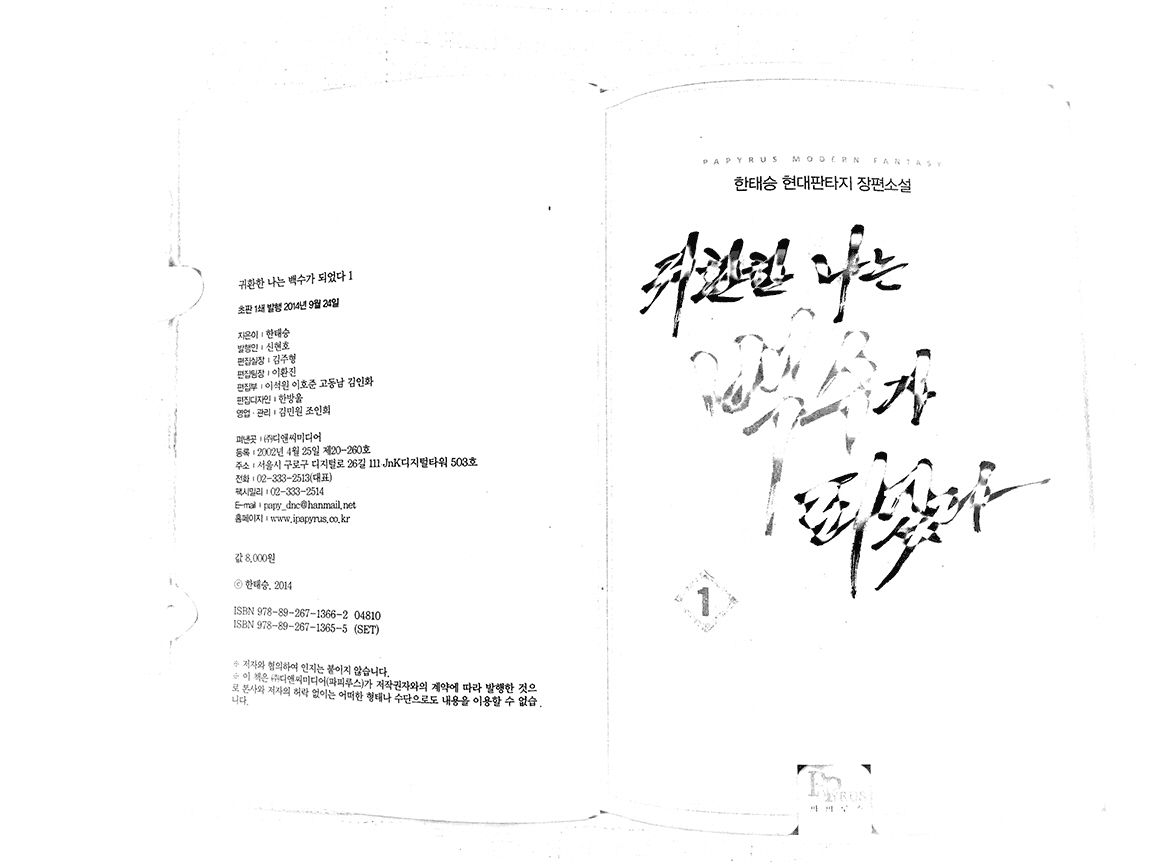 귀환한 나는 백수가 되었다 1
초판 1쇄 발행 2014년 9월 24일
지은이 | 한태승
발행인 | 신현호
편집실장 | 김주형
편집팀장 | 이환진
편집부 | 이석원 이호준 고동남 김인화
편집디자인 | 한방울
영업 · 관리 | 김민원 조인희
펴낸곳 | ㈜디앤씨미디어
등록 | 2002년 4월 25일 제20-260호
주소 | 서울시 구로구 디지털로 26길 111 JnK디지털타워 503호
전화 | 02-333-2513(대표)
팩시밀리 | 02-333-2514
E-mail | papy_dnc@hanmail.net
홈페이지 | www.ipapyrus.co.kr
값 8,000원
ⓒ 한태승, 2014
ISBN 978-89-267-1366-2 04810
ISBN 978-89-267-1365-5 (SET)
※ 저자와 협의하여 인지는 붙이지 않습니다.
※ 이 책은 ㈜디앤씨미디어(파피루스)가 저작권자와의 계약에 따라 발행한 것으
로 본사와 저자의 허락 없이는 어떠한 형태나 수단으로도 내용을 이용할 수 없습
니다.
PAPYRUS MODERN FANTASY
한태승 현대판타지 장편소설
귀환한 나는
백수가
되었다
1
PAPYRUS
파피루스